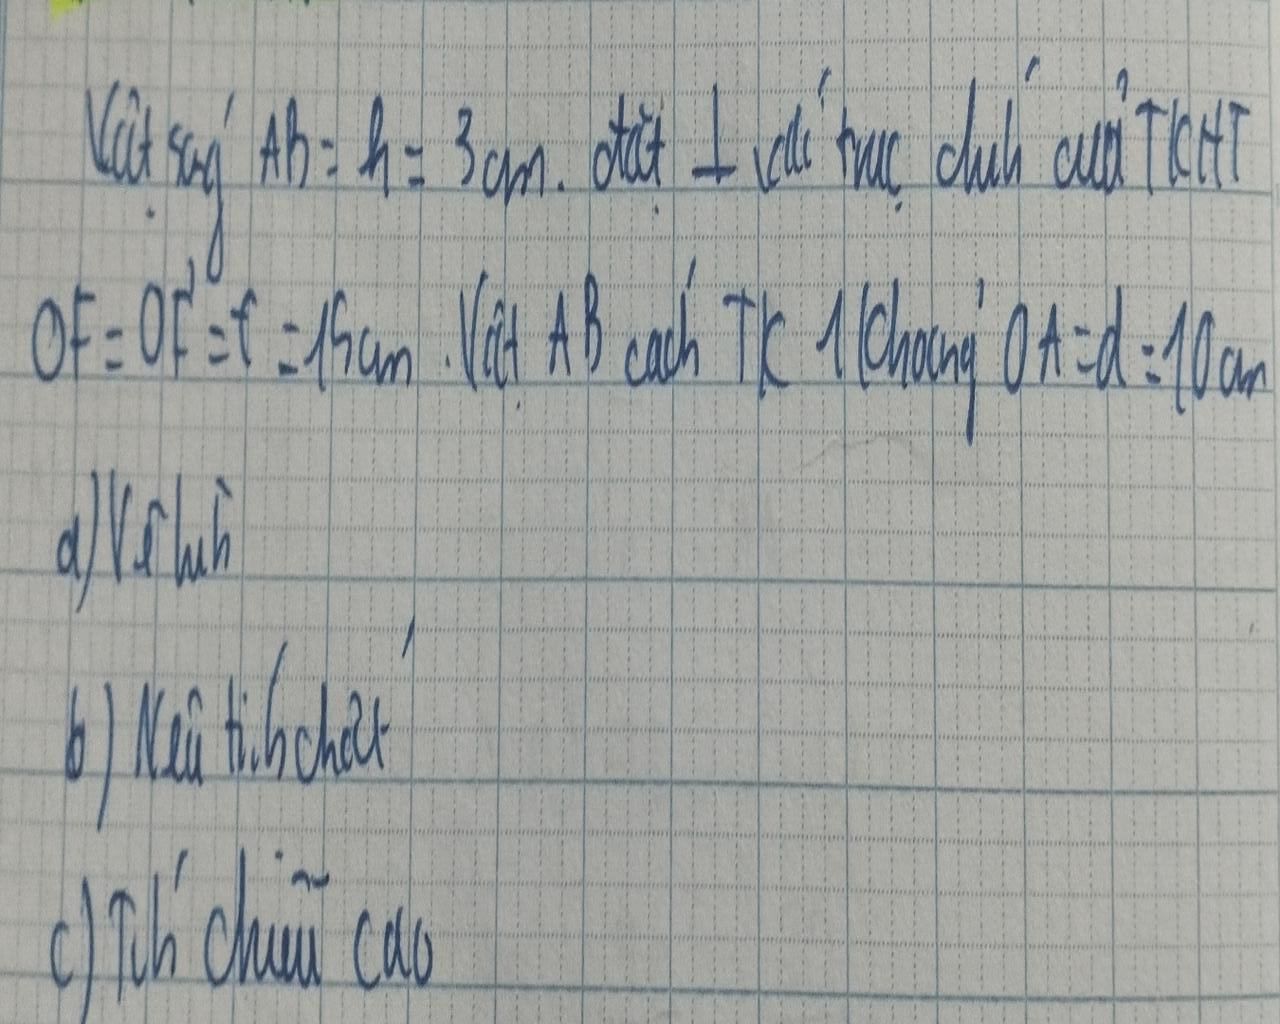 Vật sáng AB = h = 3cm. đặt ⊥ với trục chính của TKHT
OF = OF' = f = 15cm. Vật AB cách TK 1 khoảng OA = d = 10cm
a) Vẽ hình
b) Nêu tính chất
c) Tính chiều cao